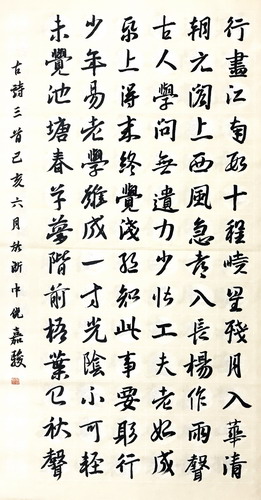 行盡江南數十程曉星殘月入華清
朝元閣上西風急都入長楊作雨聲
古人學問無遺力少壯工夫老始成
紙上得來終覺淺絕知此事要躬行
少年易老學難成一寸光陰不可輕
未覺池塘春草夢階前梧葉已秋聲
古詩三首己亥六月於浙中倪嘉駿